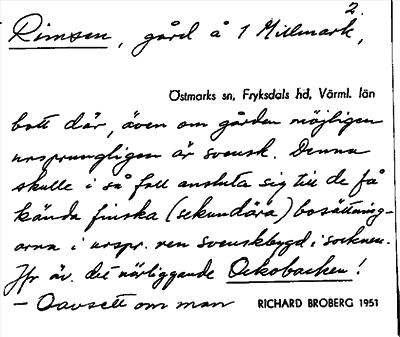 2.
Rimsen, gård å 1 Millmark,
Östmarks sn, Fryksdals hd, Värml. län
bott där, även om gården möjligen
ursprungligen är svensk. Denna
skulle i så fall ansluta sig till de få
kända finska (sekundära) bosättning-
arna i urspr. ren svenskbygd i socknen.
Jfr äv. det närliggande Ockobacken!
– Oavsett om man RICHARD BROBERG 1951